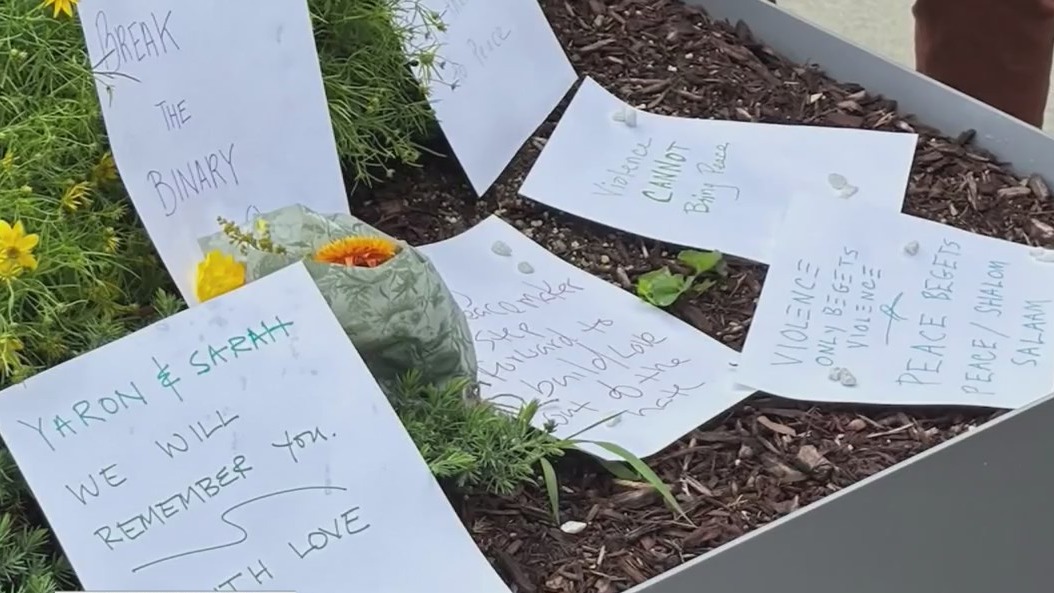 BREAK
THE
BINARY
Peace
Violence
CANNOT
Bring Peace
VIOLENCE
ONLY BEGETS
VIOLENCE
PEACE BEGETS
PEACE/SHALOM
SALAAM
forward to
build love
out of the
hate
YARON & SARAH
WE WILL
REMEMBER YOU.
WITH LOVE